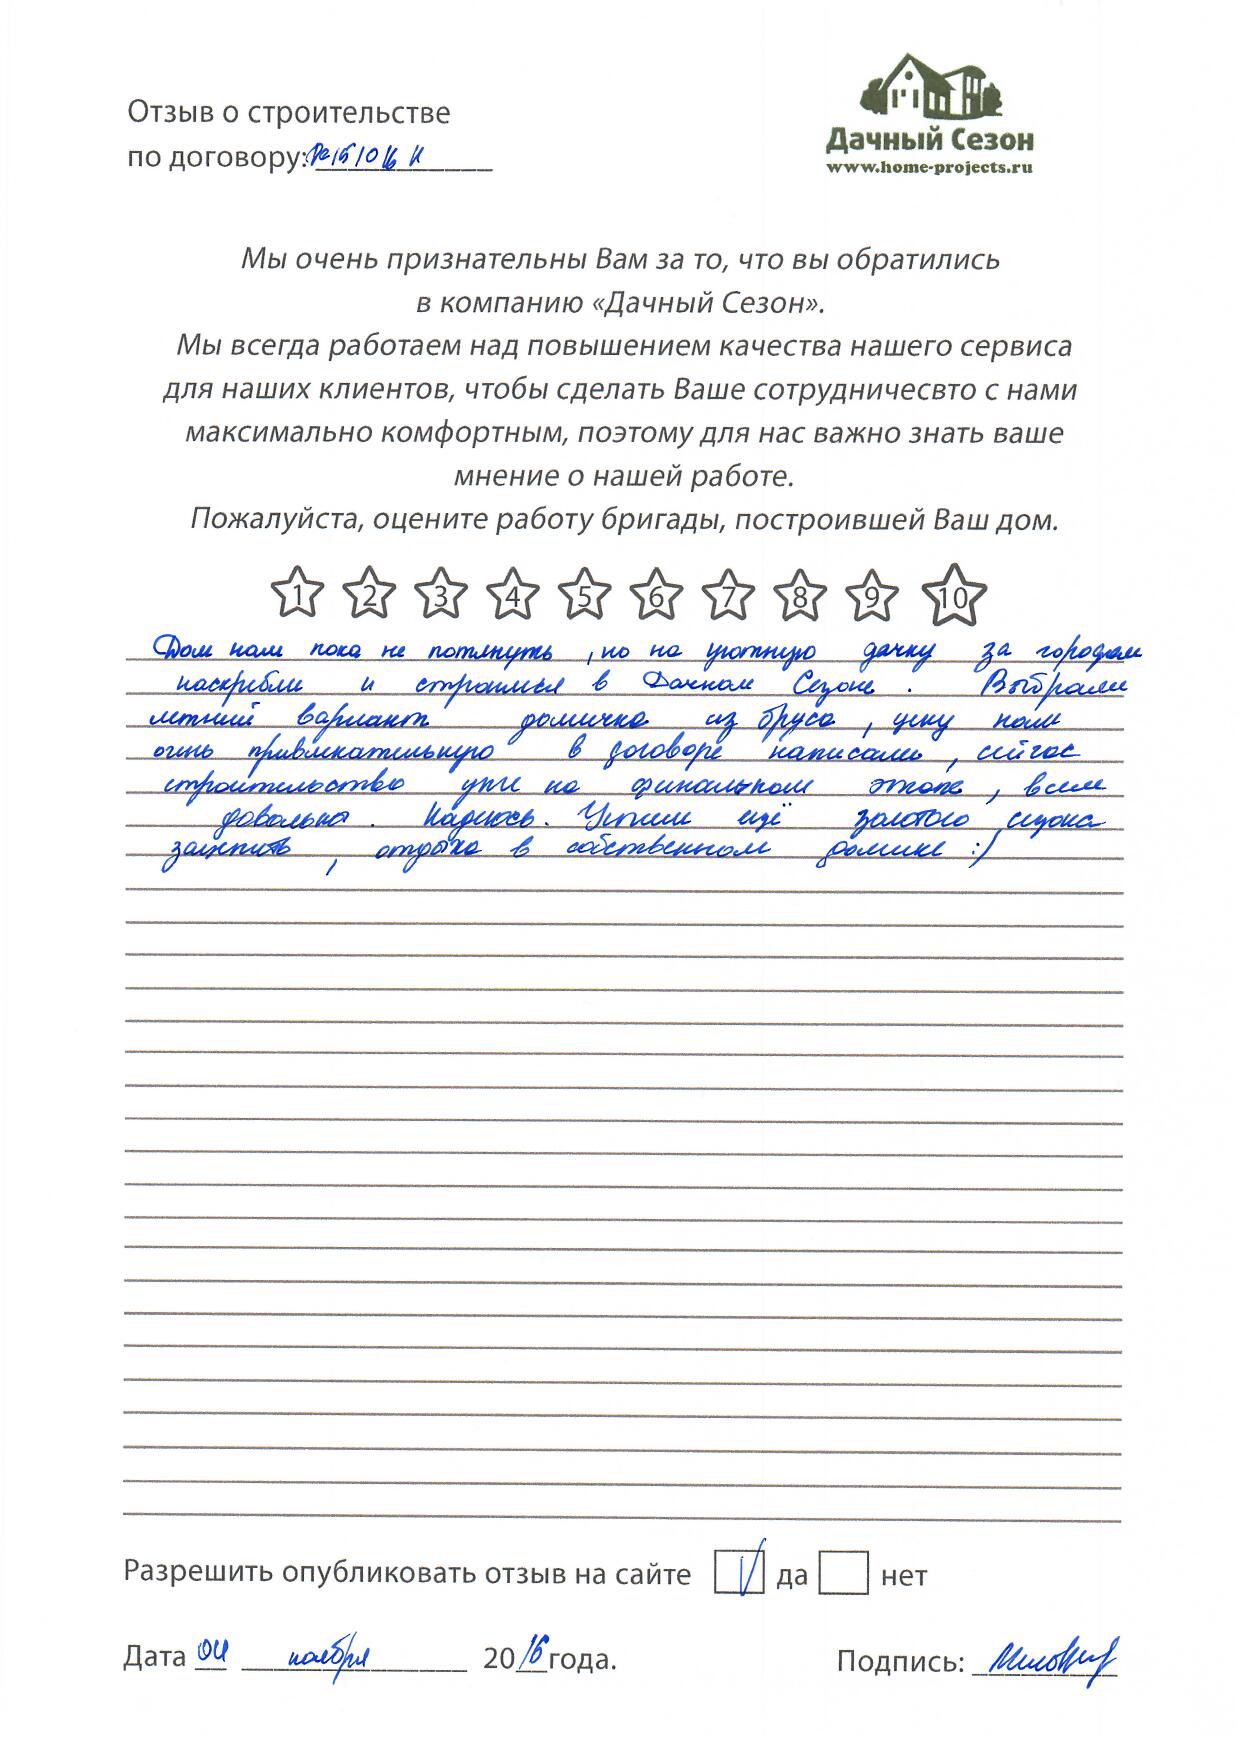 Отзыв о строительстве
по договору:
Дачный Сезон
www.home-projects.ru
Мы очень признательны Вам за то, что вы обратились
в компанию «Дачный Сезон».
Мы всегда работаем над повышением качества нашего сервиса
для наших клиентов, чтобы сделать Ваше сотрудничесвто с нами
максимально комфортным, поэтому для нас важно знать ваше
мнение о нашей работе.
Пожалуйста, оцените работу бригады, построившей Ваш дом.
1 2 3 4 5 6 7 8 9 10
Дом нам пока не потянуть, но на уютную дачку за городом
наскребли и строимся в Дачном Сезоне. Выбрали
летний вариант домика из бруса, цену нам
очень привлекательную в договоре написали, сейчас
строительство уже на финальном этапе, всем
довольны. Надеюсь. Успеем ещё золотого сезона
зацепить, отдыха в собственном домике :)
Разрешить опубликовать отзыв на сайте V да нет
Дата 04 ноября 2016 года. Подпись: